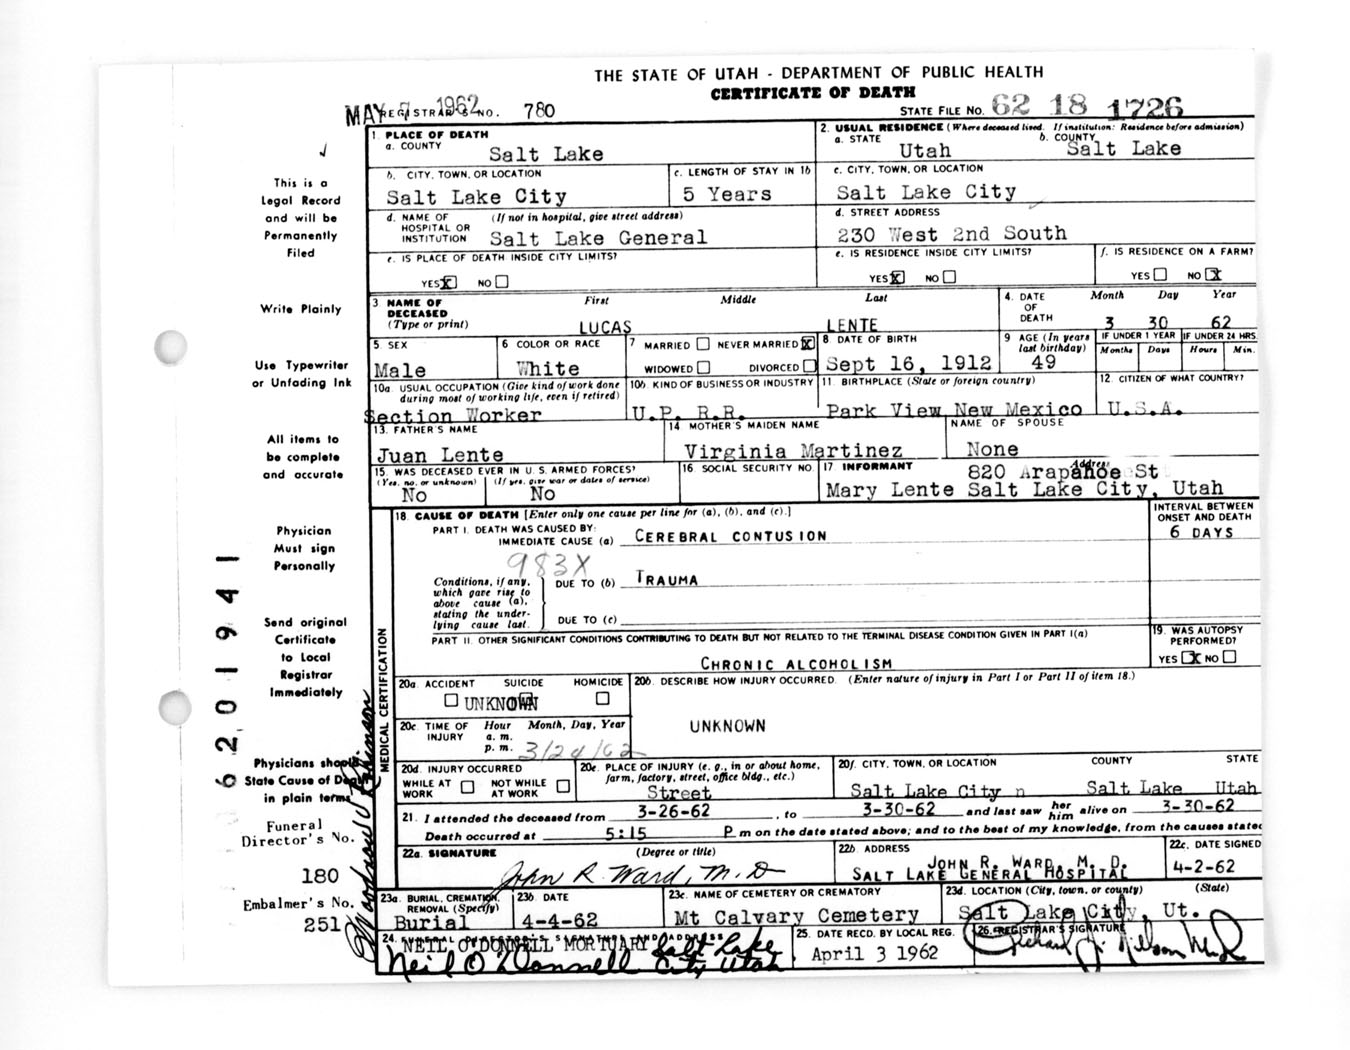 THE STATE OF UTAH - DEPARTMENT OF PUBLIC HEALTH
CERTIFICATE OF DEATH
MAY 7 1962 REGISTRAR'S NO. 780 STATE FILE NO. 62 18 1726
1. PLACE OF DEATH
a. COUNTY Salt Lake
2. USUAL RESIDENCE (Where deceased lived. If institution: Residence before admission)
a. STATE Utah b. COUNTY Salt Lake
b. CITY, TOWN, OR LOCATION Salt Lake City
c. LENGTH OF STAY IN 1b 5 Years
c. CITY, TOWN, OR LOCATION Salt Lake City
d. NAME OF HOSPITAL OR INSTITUTION (If not in hospital, give street address) Salt Lake General
d. STREET ADDRESS 230 West 2nd South
e. IS PLACE OF DEATH INSIDE CITY LIMITS?
YES X NO
e. IS RESIDENCE INSIDE CITY LIMITS?
YES X NO
f. IS RESIDENCE ON A FARM?
YES NO X
3 NAME OF DECEASED (Type or print) First Middle Last
LUCAS LENTE
4. DATE OF DEATH Month Day Year
3 30 62
5. SEX Male
6 COLOR OR RACE White
7 MARRIED NEVER MARRIED X
WIDOWED DIVORCED
8 DATE OF BIRTH Sept 16, 1912
9 AGE (In years last birthday) 49
IF UNDER 1 YEAR Months Days
IF UNDER 24 HRS. Hours Min.
10a. USUAL OCCUPATION (Give kind of work done during most of working life, even if retired)
Section Worker
10b. KIND OF BUSINESS OR INDUSTRY U.P. R.R.
11. BIRTHPLACE (State or foreign country) Park View New Mexico
12. CITIZEN OF WHAT COUNTRY? U.S.A.
13. FATHER'S NAME Juan Lente
14 MOTHER'S MAIDEN NAME Virginia Martinez
NAME OF SPOUSE None
15. WAS DECEASED EVER IN U. S. ARMED FORCES?
(Yes, no, or unknown) (If yes, give war or dates of service)
No No
16. SOCIAL SECURITY NO.
17 INFORMANT Address 820 Arapahoe St
Mary Lente Salt Lake City, Utah
MEDICAL CERTIFICATION
18. CAUSE OF DEATH [Enter only one cause per line for (a), (b), and (c).]
INTERVAL BETWEEN ONSET AND DEATH
PART I. DEATH WAS CAUSED BY:
IMMEDIATE CAUSE (a) CEREBRAL CONTUSION 6 DAYS
983X
Conditions, if any, which gave rise to above cause (a), stating the underlying cause last.
DUE TO (b) TRAUMA
DUE TO (c)
PART II. OTHER SIGNIFICANT CONDITIONS CONTRIBUTING TO DEATH BUT NOT RELATED TO THE TERMINAL DISEASE CONDITION GIVEN IN PART I(a)
CHRONIC ALCOHOLISM
19. WAS AUTOPSY PERFORMED?
YES X NO
20a. ACCIDENT SUICIDE HOMICIDE
UNKNOWN
20b. DESCRIBE HOW INJURY OCCURRED. (Enter nature of injury in Part I or Part II of item 18.)
UNKNOWN
20c. TIME OF INJURY Hour a. m. p. m. Month, Day, Year
3/24/62
20d. INJURY OCCURRED
WHILE AT WORK NOT WHILE AT WORK
20e. PLACE OF INJURY (e. g., in or about home, farm, factory, street, office bldg., etc.)
Street
20f. CITY, TOWN, OR LOCATION COUNTY STATE
Salt Lake City n Salt Lake Utah
21. I attended the deceased from 3-26-62, to 3-30-62 and last saw her him alive on 3-30-62
Death occurred at 5:15 P m on the date stated above; and to the best of my knowledge, from the causes stated
22a. SIGNATURE (Degree or title) John R. Ward, M.D
22b. ADDRESS JOHN R. WARD, M. D.
SALT LAKE GENERAL HOSPITAL
22c. DATE SIGNED 4-2-62
23a. BURIAL, CREMATION, REMOVAL (Specify) Burial
23b. DATE 4-4-62
23c. NAME OF CEMETERY OR CREMATORY Mt Calvary Cemetery
23d. LOCATION (City, town, or county) (State)
Salt Lake City, Ut.
24. NEIL O'DONNELL MORTUARY Salt Lake
Neil O'Donnell City Utah
25. DATE RECD. BY LOCAL REG. April 3 1962
26. REGISTRAR'S SIGNATURE
This is a
Legal Record
and will be
Permanently
Filed
Write Plainly
Use Typewriter
or Unfading Ink
All items to
be complete
and accurate
Physician
Must sign
Personally
Send original
Certificate
to Local
Registrar
Immediately
Physicians should
State Cause of Death
in plain terms
Funeral
Director's No.
180
Embalmer's No.
251
6201941